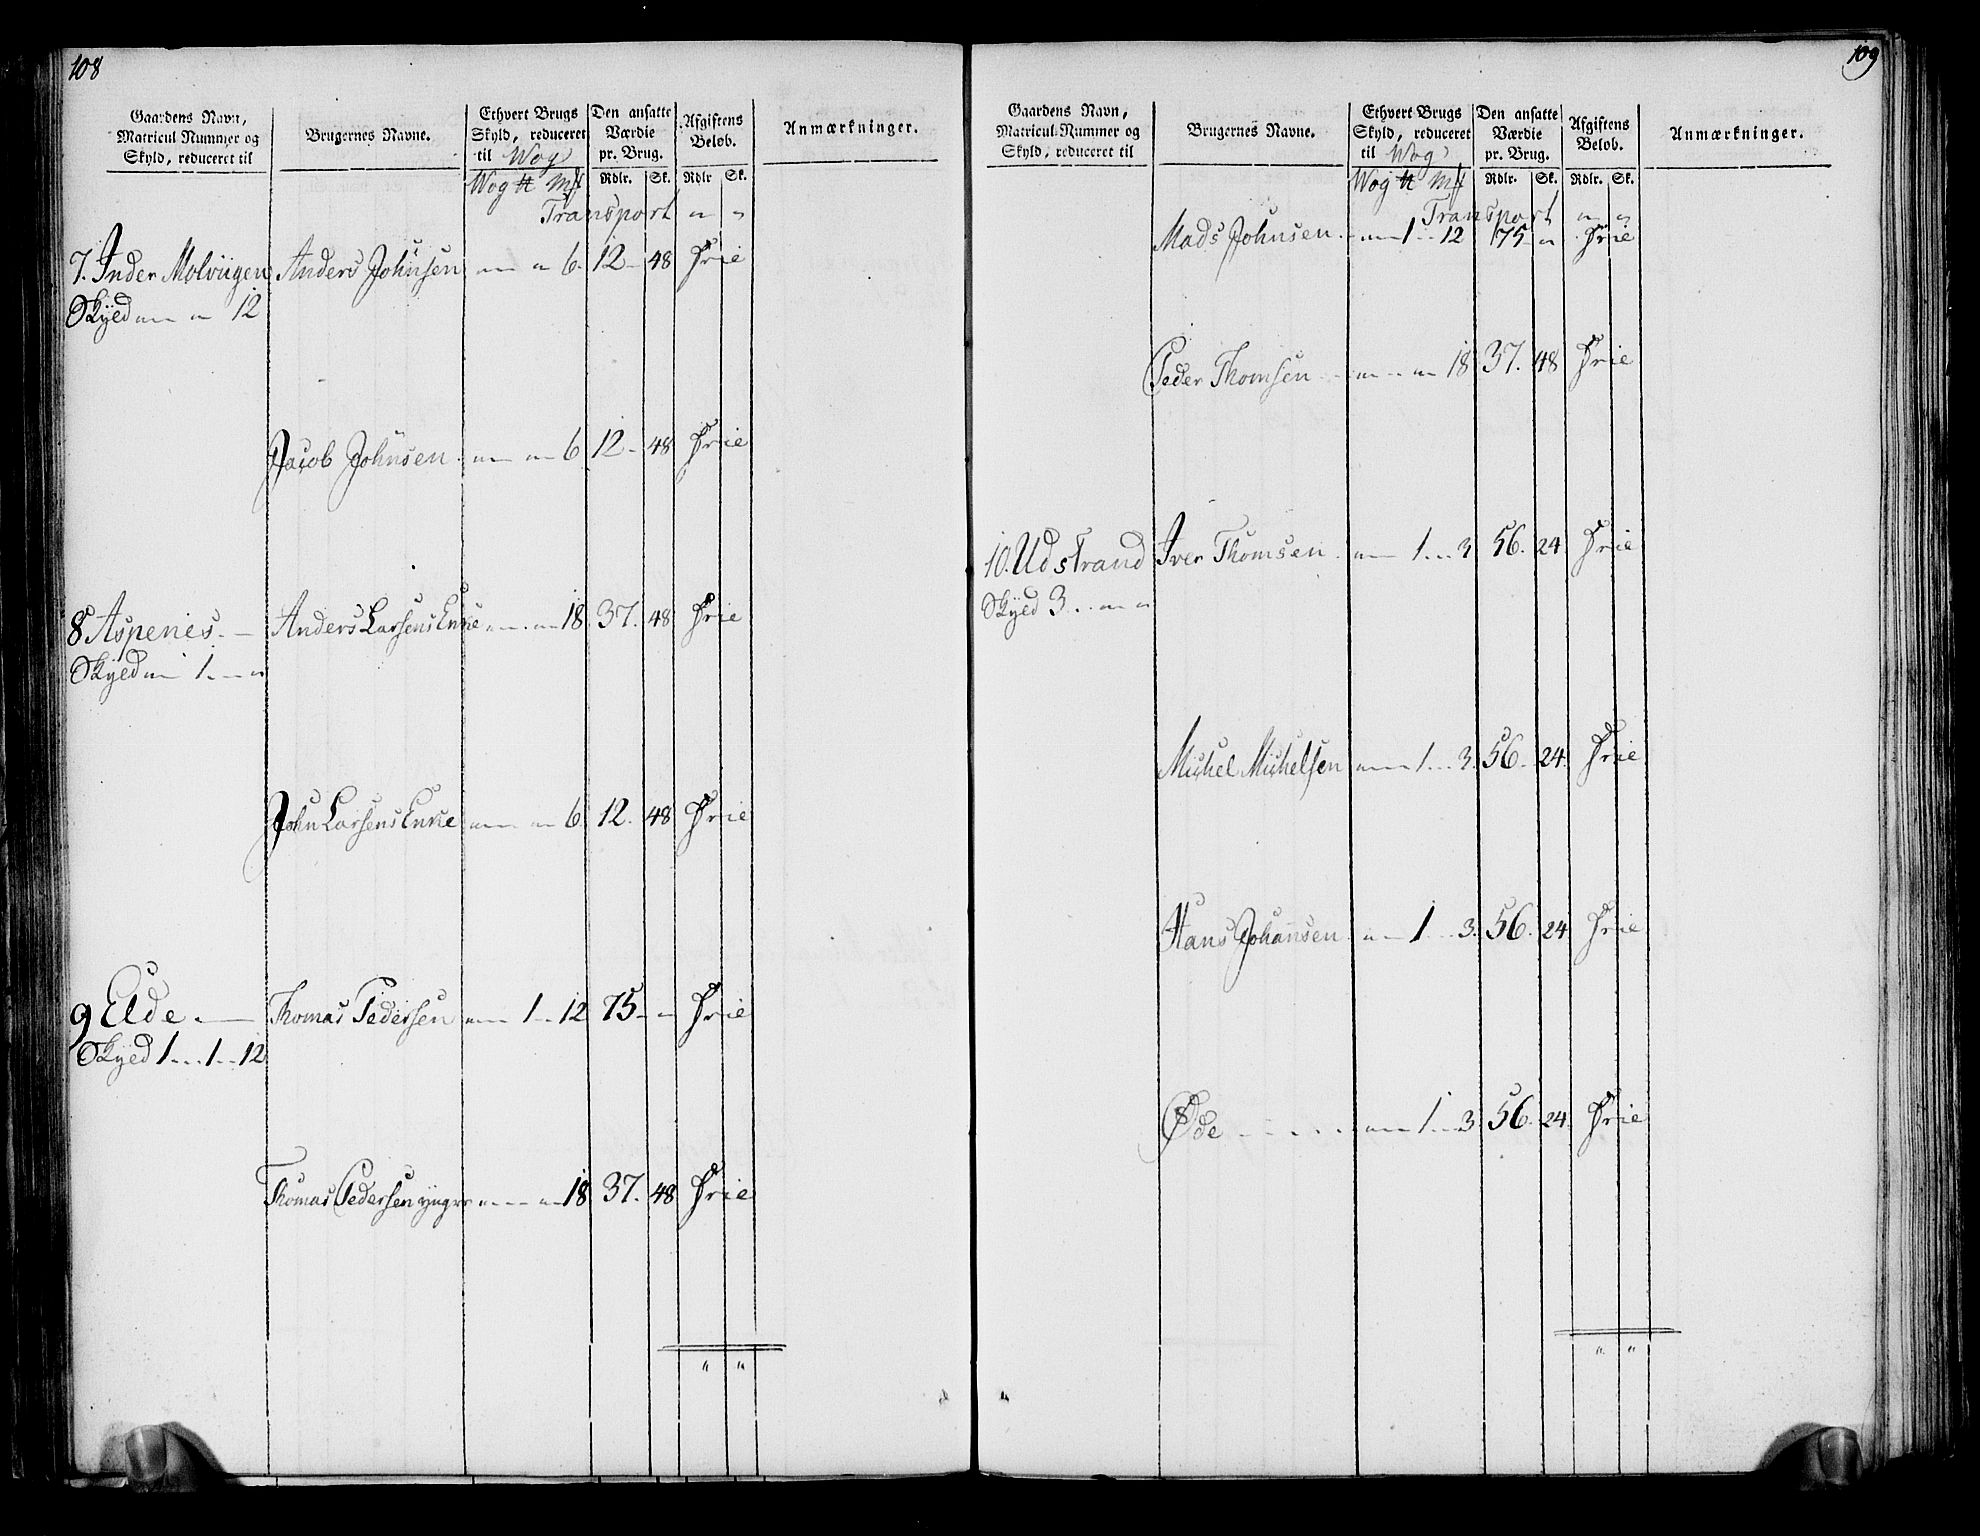 108
Gaardens Navn, Matricul Nummer og Skyld, reduceret til
Brugernes Navne.
Ethvert Brugs Skyld, reduceret til Wog
Den ansatte Værdie pr. Brug.
Afgiftens Beløb.
Anmærkninger.
Wog ℔ Mk Rdlr. Sk. Rdlr Sk.
Transport " "
7. Inder Molvigen Anders Johnsen " " 6. 12 - 48 Frie
Skyld " " 12
Jacob Johnsen " " 6 12 - 48 Frie
8 Aspenes. Anders Larsens Enke " " 18 37. 48 Frie
Skyld " 1 - "
John Larsens Enke " " 6. 12. 48 Frie
9 Elde. Thomas Pedersen " 1 - 12 75 - " Frie
Skyld 1 - 1 - 12
Thomas Pedersen yngre " " 18 37. 48 Frie
" "
109
Gaardens Navn, Matricul-Nummer og Skyld, reduceret til
Brugernes Navne.
Ethvert Brugs Skyld, reduceret til Wog
Den ansatte Værdie pr. Brug.
Afgiftens Beløb.
Anmærkninger.
Wog ℔ Mk Rdlr. Sk. Rdlr. Sk.
Transport " "
Mads Johnsen " 1 - 12 175 - " Frie
Peder Thomsen " " 18 37. 48 Frie
10. Udstrand Iver Thomsen " 1 - 3 56. 24 Frie
Skyld 3 - " "
Michel Michelsen " 1 - 3. 56. 24. Frie
Hans Johansen " 1 - 3. 56. 24 Frie
Øde " 1 - 3 56. 24. Frie
" "